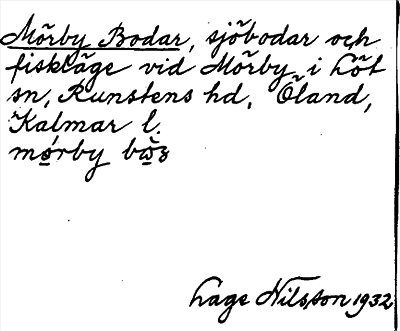 Mörby Bodar, sjöbodar och
fiskläge vid Mörby i Löt
sn, Runstens hd, Öland,
Kalmar l.
mørby bὼz
Lage Nilsson 1932